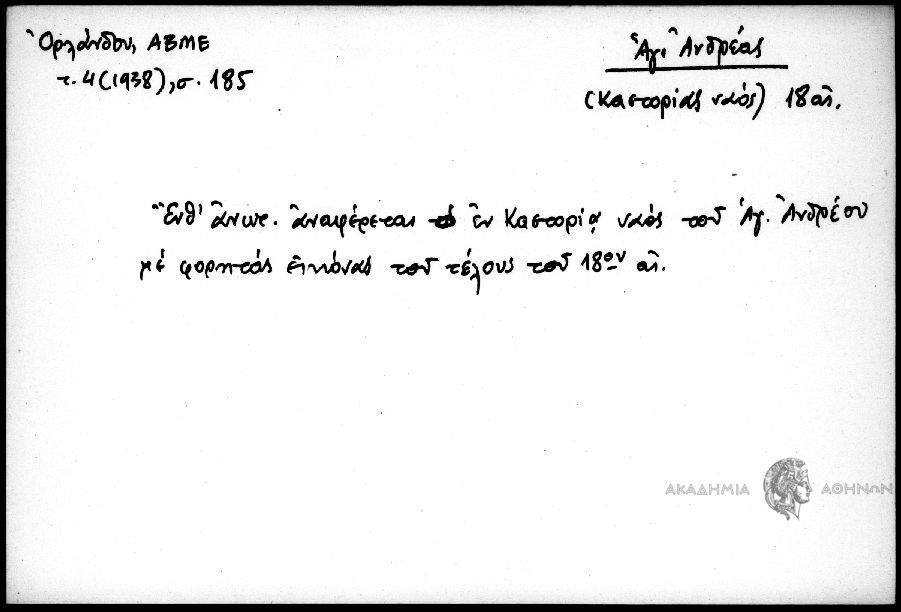 Ὀρλάνδου, ΑΒΜΕ
τ. 4 (1938), σ. 185
Ἁγ. Ἀνδρέας
(Καστορίας ναός) 18 αἰ.
Ἔνθ' ἄνωτ. ἀναφέρεται ἐν Καστορίᾳ ναός τοῦ Ἁγ. Ἀνδρέου
μέ φορητάς εἰκόνας τοῦ τέλους τοῦ 18ου αἰ.
ΑΚΑΔΗΜΙΑ ΑΘΗΝΩΝ